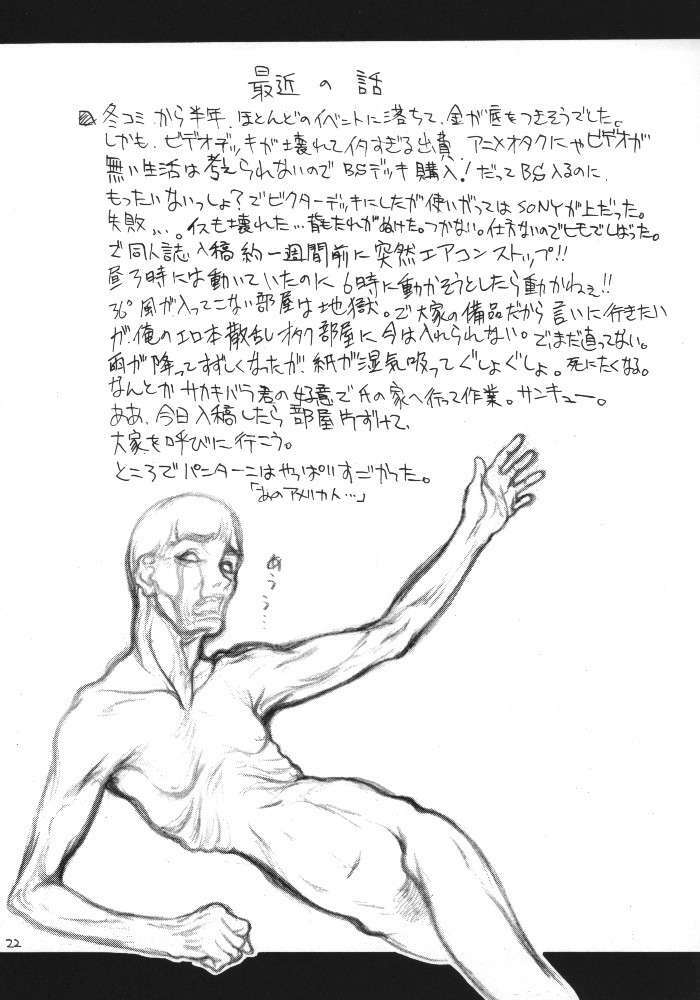 最近の話
冬コミから半年、ほとんどのイベントに落ちて、金が底もつきそうでした。
しかも、ビデオデッキが壊れてイタすぎる出費。アニメオタクにゃビデオが
無い生活は考えられないのでBSデッキ購入!だってBS入るのに、
もったいないっしょ?でビクターデッキにしたが使いがってはSONYが上だった。
失敗、、、。イスも壊れた…背もたれがぬけた。つかない。仕方ないのでヒモでしばった。
で同人誌入稿約一週間前に突然エアコンストップ!!
昼3時には動いていたのに6時に動かそうとしたら動かねぇ!!
36°風が入ってこない部屋は地獄。で大家の備品だから言いに行きたい
が、俺のエロ本散乱オタク部屋に今は入れられない。でまだ直ってない。
雨が降ってすずしくなったが、紙が湿気吸ってぐしょぐしょ。死にたくなる。
なんとかサカキバラ君の好意で氏の家へ行って作業。サンキュー。
ああ、今日入稿したら部屋片ずけて、
大家を呼びに行こう。
ところでパンターニはやっぱりすごかった。
「あのアメリカ人…」
あうう…
22